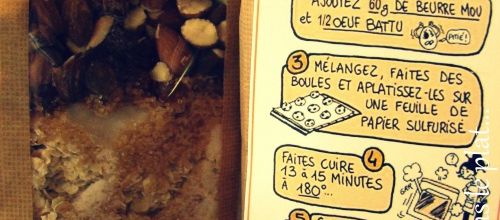 AJOUTEZ 60g DE BEURRE MOU
et 1/2 OEUF BATTU
PITIÉ!
3 MÉLANGEZ, FAITES DES
BOULES ET APLATISSEZ-LES SUR
UNE FEUILLE DE
PAPIER SULFURISÉ
4
FAITES CUIRE
13 à 15 MINUTES
À 180°...
5